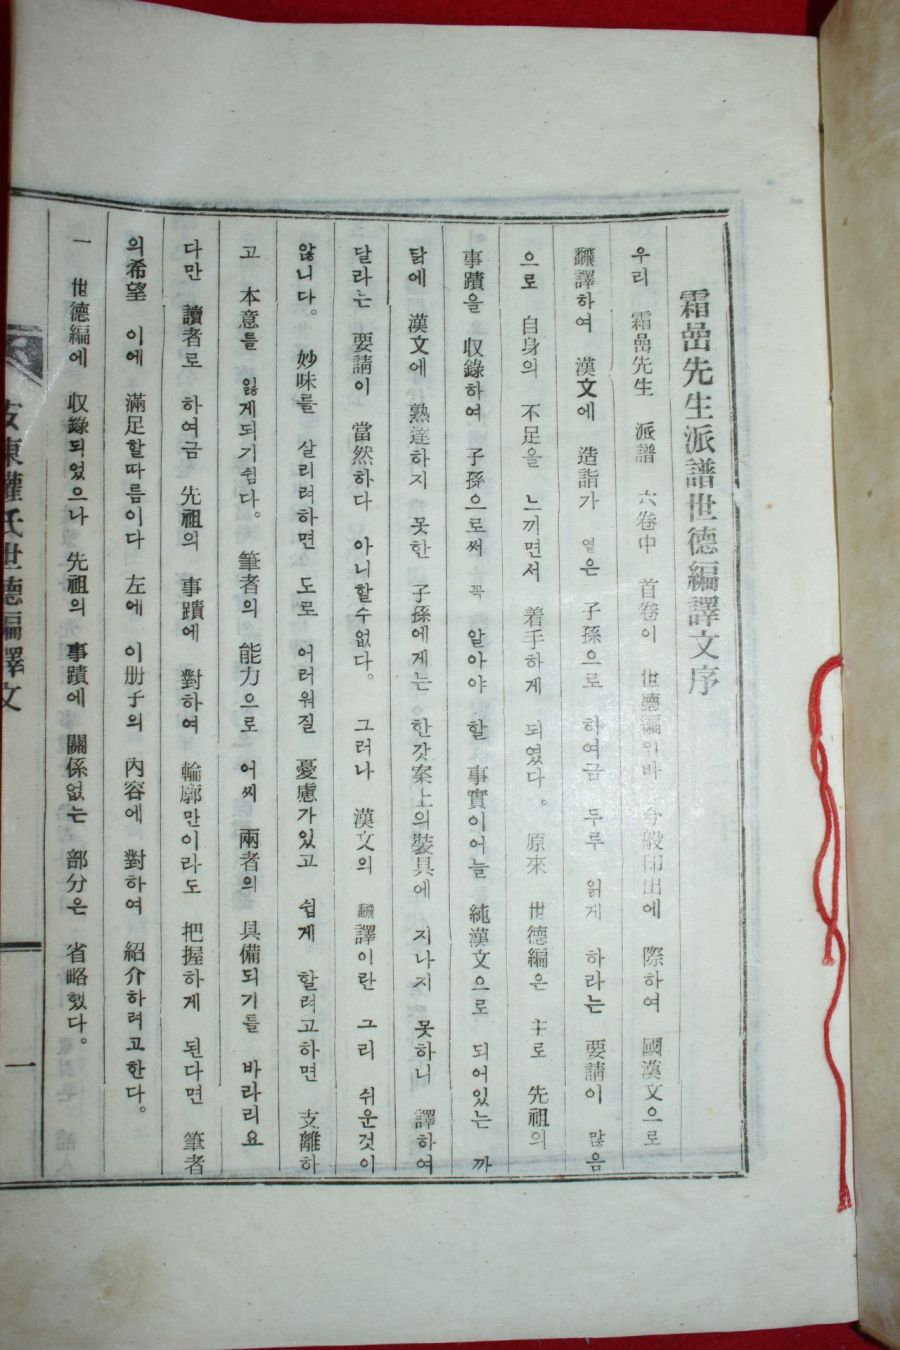 霜嵒先生派譜世德編譯文序
우리 霜嵒先生 派譜 六卷中 首卷이 世德編인바 今般印出에 際하여 國漢文으로
飜譯하여 漢文에 造詣가 옅은 子孫으로 하여금 두루 읽게 하라는 要請이 많음
으로 自身의 不足을 느끼면서 着手하게 되였다。 原來 世德編은 主로 先祖의
事蹟을 収錄하여 子孫으로써 꼭 알아야 할 事實이어늘 純漢文으로 되어있는 까
닭에 漢文에 熟達하지 못한 子孫에게는 한갓案上의裝具에 지나지 못하니 譯하여
달라는 要請이 當然하다 아니할수없다。 그러나 漢文의 飜譯이란 그리 쉬운것이
않니다。 妙味를 살리려하면 도로 어러워질 憂慮가있고 쉽게 할려고하면 支離하
고 本意를 잃게되기쉽다。 筆者의 能力으로 어찌 兩者의 具備되기를 바라리요
다만 讀者로 하여금 先祖의 事蹟에 對하여 輪廓만이라도 把握하게 된다면 筆者
의希望 이에 滿足할따름이다 左에 이册子의 內容에 對하여 紹介하려고한다。
一 世德編에 収錄되었으나 先祖의 事蹟에 關係없는 部分은 省略했다。
安東權氏世德編譯文
一